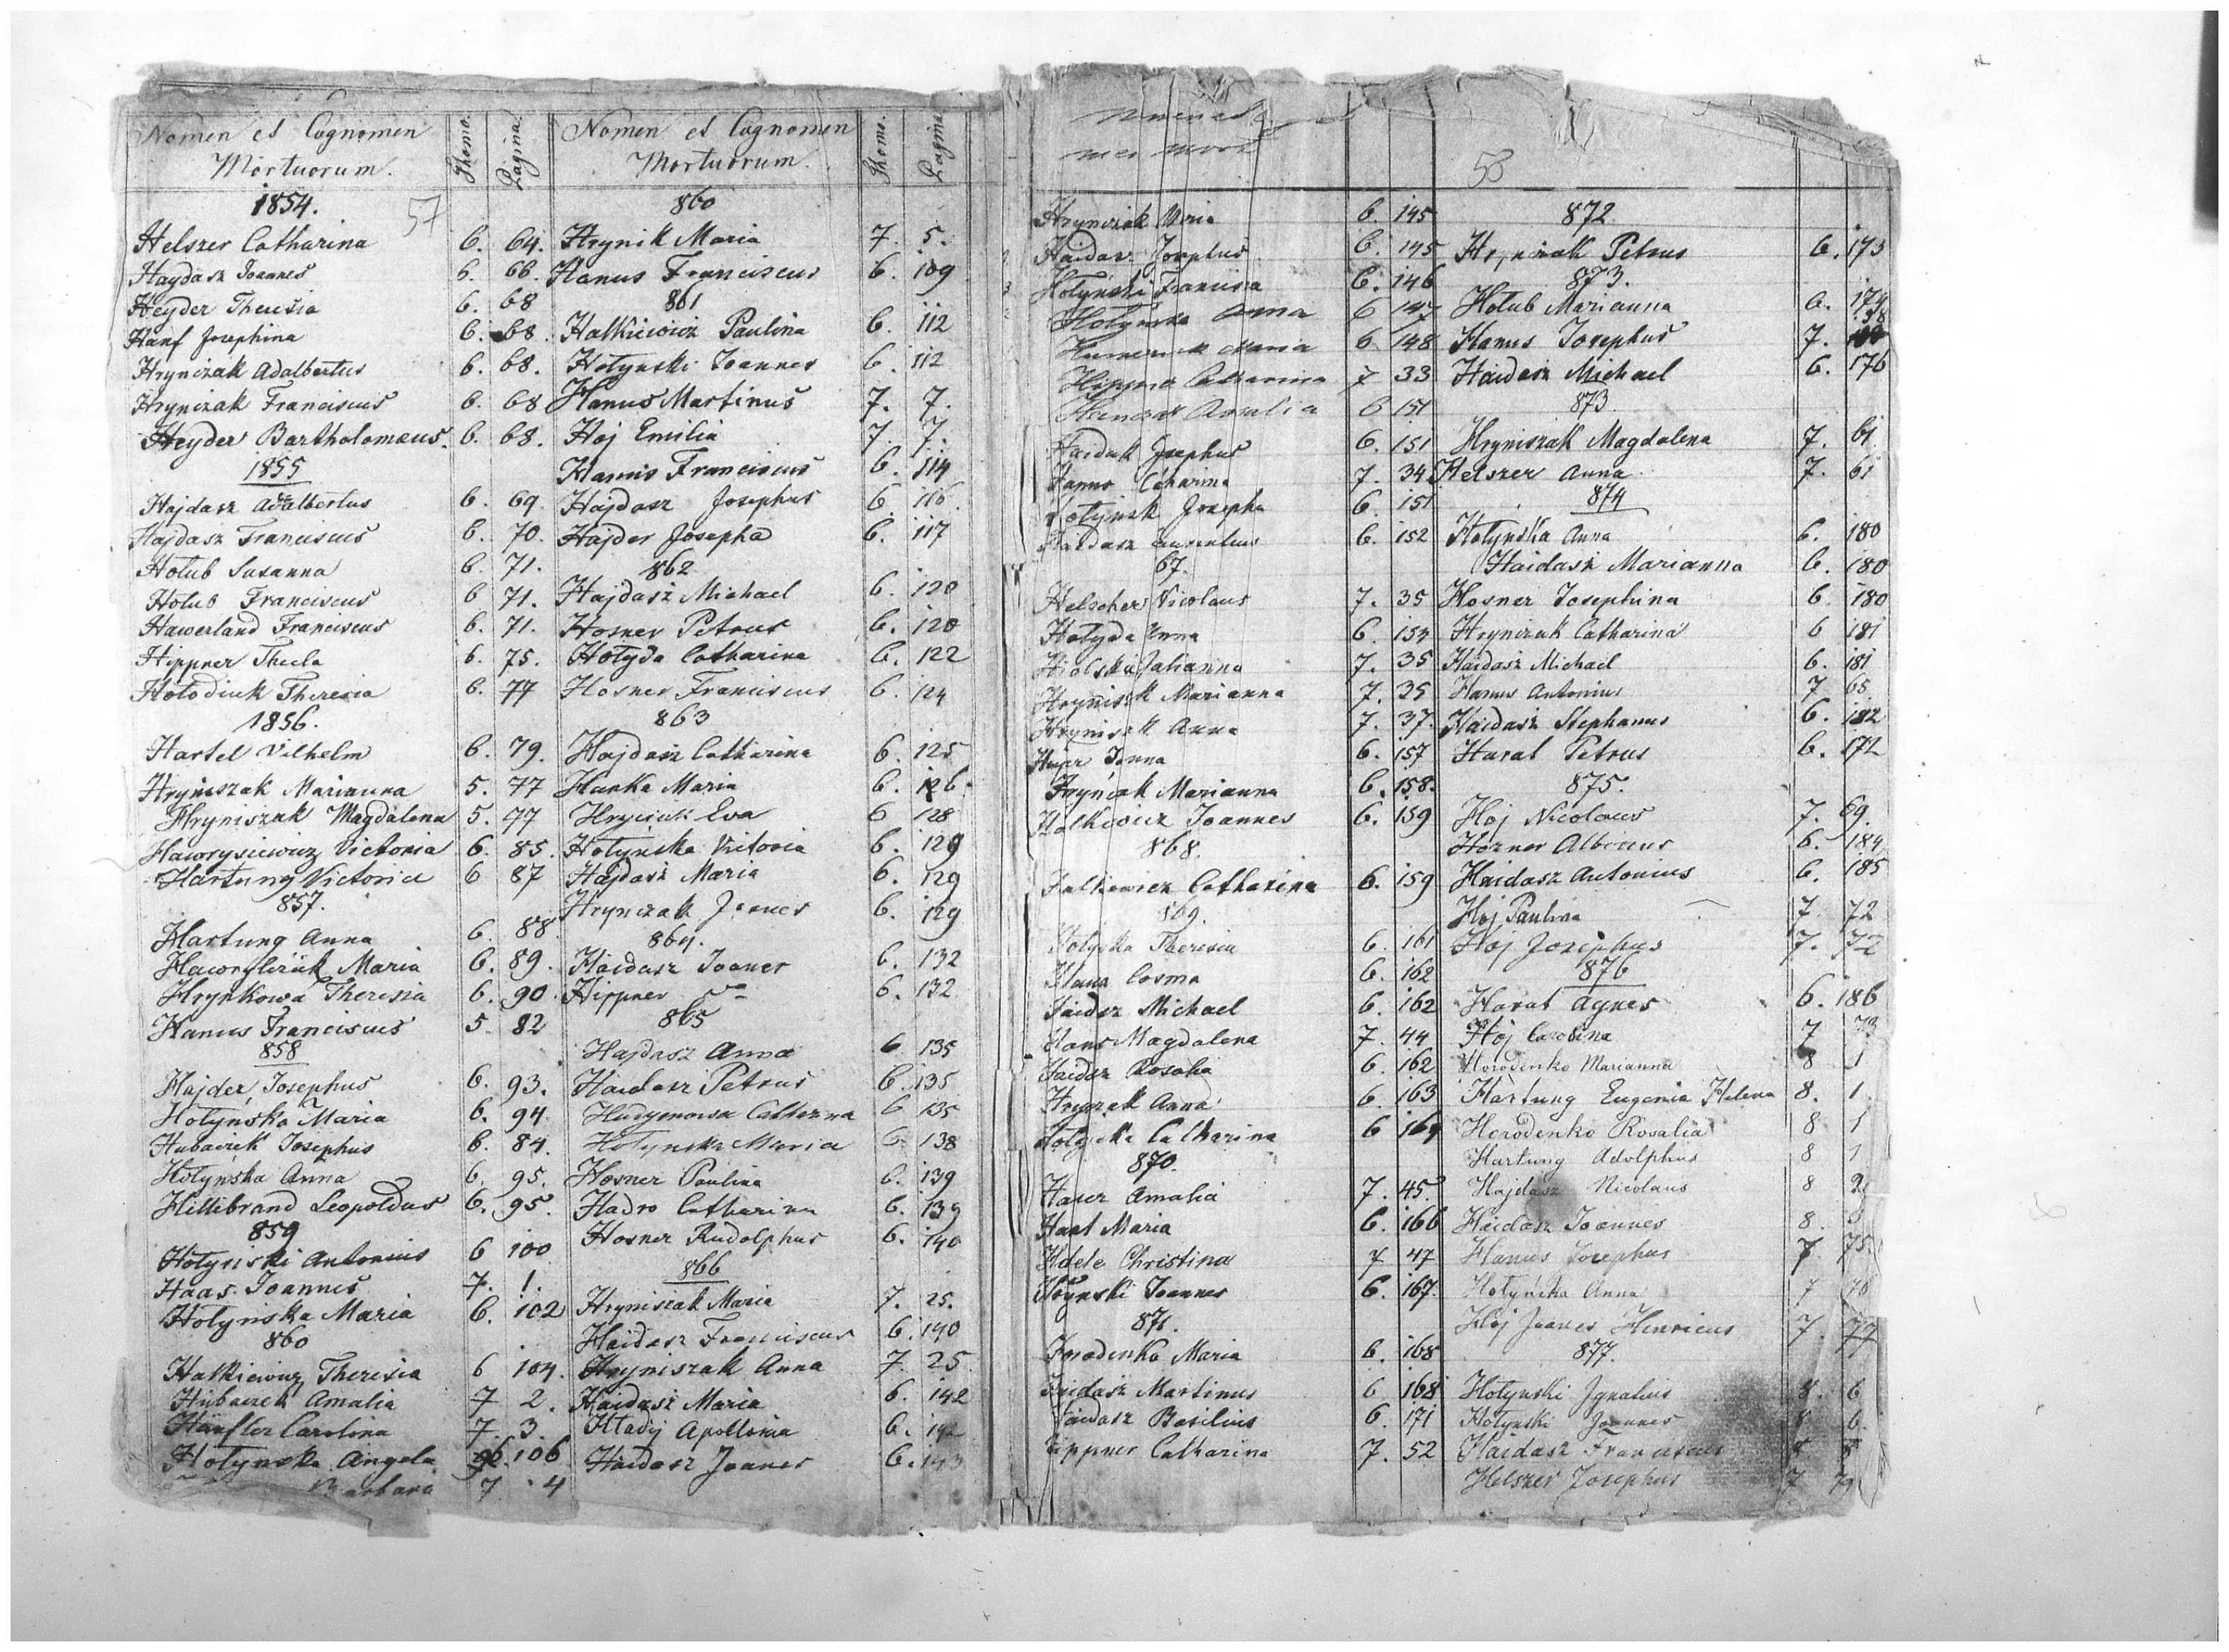 Nomen et Cognomen
Mortuorum.
Thomo.
Pagina
1854.
57
Helszer Catharina 6. 64.
Haydasz Joannes 6. 66.
Heyder Theresia 6. 68
Hanf Josephina 6. 68.
Hryniżak Adalbertus 6. 68.
Hryniżak Franciscus 6. 68
Heyder Bartholomæus. 6. 68.
1855
Hajdasz Adalbertus 6. 69
Hajdasz Franciscus 6. 70.
Hołub Susanna 6. 71.
Hołub Franciscus 6 71.
Hawerland Franciscus 6. 71.
Hippner Thecla 6. 75.
Hołodiuk Theresia 6. 77
1856.
Hartel Vilhelm 6. 79.
Hryniszak Marianna 5. 77
Hryniszak Magdalena 5. 77
Hawrysiewicz Victoria 6. 85.
Hartung Victoria 6 87
857.
Hartung Anna 6. 88
Maria 6. 89.
Hrynkowa Theresia 6. 90.
Hanus Franciscus 5. 82
858
Hajder Josephus 6. 93.
Hołyńska Maria 6. 94.
Hubaczek Josephus 6. 84.
Hołyńska Anna 6. 95.
Hillibrand Leopoldus 6. 95.
859
Hołyński Antonius 6 100
Haas Joannes 7. 1.
Hołyńska Maria 6. 102
860
Halkiewicz Theresia 6 104.
Hubaczek Amalia 7 2.
Hänfler Carolina 7. 3.
Hołynska Angela 106
Barbara 7 4
Nomen et Cognomen
Mortuorum.
Thomo.
Pagina
860
Hrynik Maria 7. 5.
Hanus Franciscus 6. 109
861
Halkiewicz Paulina 6. 112
Hołynski Joannes 6. 112
Hanus Martinus 7. 7.
Hoj Emilia 7. 7.
Hanus Franciscus 6. 114
Hajdasz Josephus 6. 116.
Hajder Josepha 6. 117
862
Hajdasz Michael 6. 120
Hosner Petrus 6. 120
Hołyda Catharina 6. 122
Hosner Franciscus 6. 124
863
Hajdasz Catharina 6. 125
Hanka Maria 6. 126.
Hryciuk Eva 6 128
Hołyńska Vitoria 6. 129
Hajdasz Maria 6. 129
Hrynczak Joanes 6. 129
864.
Haidasz Joanes 6. 132
Hippner 6. 132
865
Hajdasz Anna 6 135
Haidasz Petrus 6. 135
6 135
Hołynska Maria 6. 138
Hosner Paulina 6. 139
Hadro Catharina 6. 139
Hosner Rudolphus 6. 140
866
Hryniszak Maria 7. 25.
Haidasz Franciscus 6. 140
Hryniszak Anna 7. 25
Haidasz Maria 6. 142
Hładij Apollonia 6. 142
Haidasz Joanes 6. 143
58
Hrynczak Maria 6. 145
Haidasz Josephus 6. 145
Hołyński 6. 146
Hołyńska Anna 6 147
Maria 6 148
Hippner Catharina 7 33
Rosalia 6 151
Haiduk Josephus 6. 151
Hanus 7. 34
Josepha 6. 151
Haidasz 6. 152
67.
Helscher Nicolaus 7. 35
Hołyda Anna 6. 154
Julianna 7. 35
Marianna 7. 35
Anna 7. 37.
6. 157
Marianna 6. 158.
Halkiewicz Joannes 6. 159
868.
Halkiewicz Catharina 6. 159
869.
Theresia 6. 161
Cosma 6. 162
Haidsz Michael 6. 162
Hans Magdalena 7. 44
Haidsz Rosalia 6. 162
Anna 6 163
Catharina 6 164
870.
Hauer Amalia 7. 45.
Maria 6. 166
Christina 7 47
Joannes 6. 167.
871.
Horodenko Maria 6. 168
Haidasz Martinus 6 168
Haidasz Basilius 6. 171
Hippner Catharina 7. 52
872.
Petrus 6. 173
873.
Hołub Marianna 6. 174
Hanus Josephus 7.
Haidasz Michael 6. 176
873
Hryniszak Magdalena 7. 61.
Helszer Anna 7. 61
874
Hołyńska Anna 6. 180
Haidasz Marianna 6. 180
Hosner Josephina 6 180
Hryniżak Catharina 6 181
Haidasz Michael 6. 181
Hanus Antonius 7 65
Haidasz Stephanus 6. 182
Harat Petrus 6. 172
875.
Hoj Nicolaus 7. 69.
Hozner Albinus 6. 184
Haidasz Antonius 6. 185
Hoj Paulina 7. 72
Hoj Josephus 7. 72
876
Harat Agnes 6. 186
Hoj Carolina 7 73
Horodenko Marianna 8 1
Hartung Eugenia Helena 8. 1
Horodenko Rosalia 8 1
Hartung Adolphus 8 1
Hajdasz Nicolaus 8 2
Haidasz Joannes 8. 3
Hanus Josephus 7. 75
Hołyńska Anna 7 76
Hoj Joanes Henricus 7. 77
877.
Hołyński Ignatius 8. 6
Hołynski Joannes 8. 6.
Haidasz Franciscus
Helszer Josephus 7 79